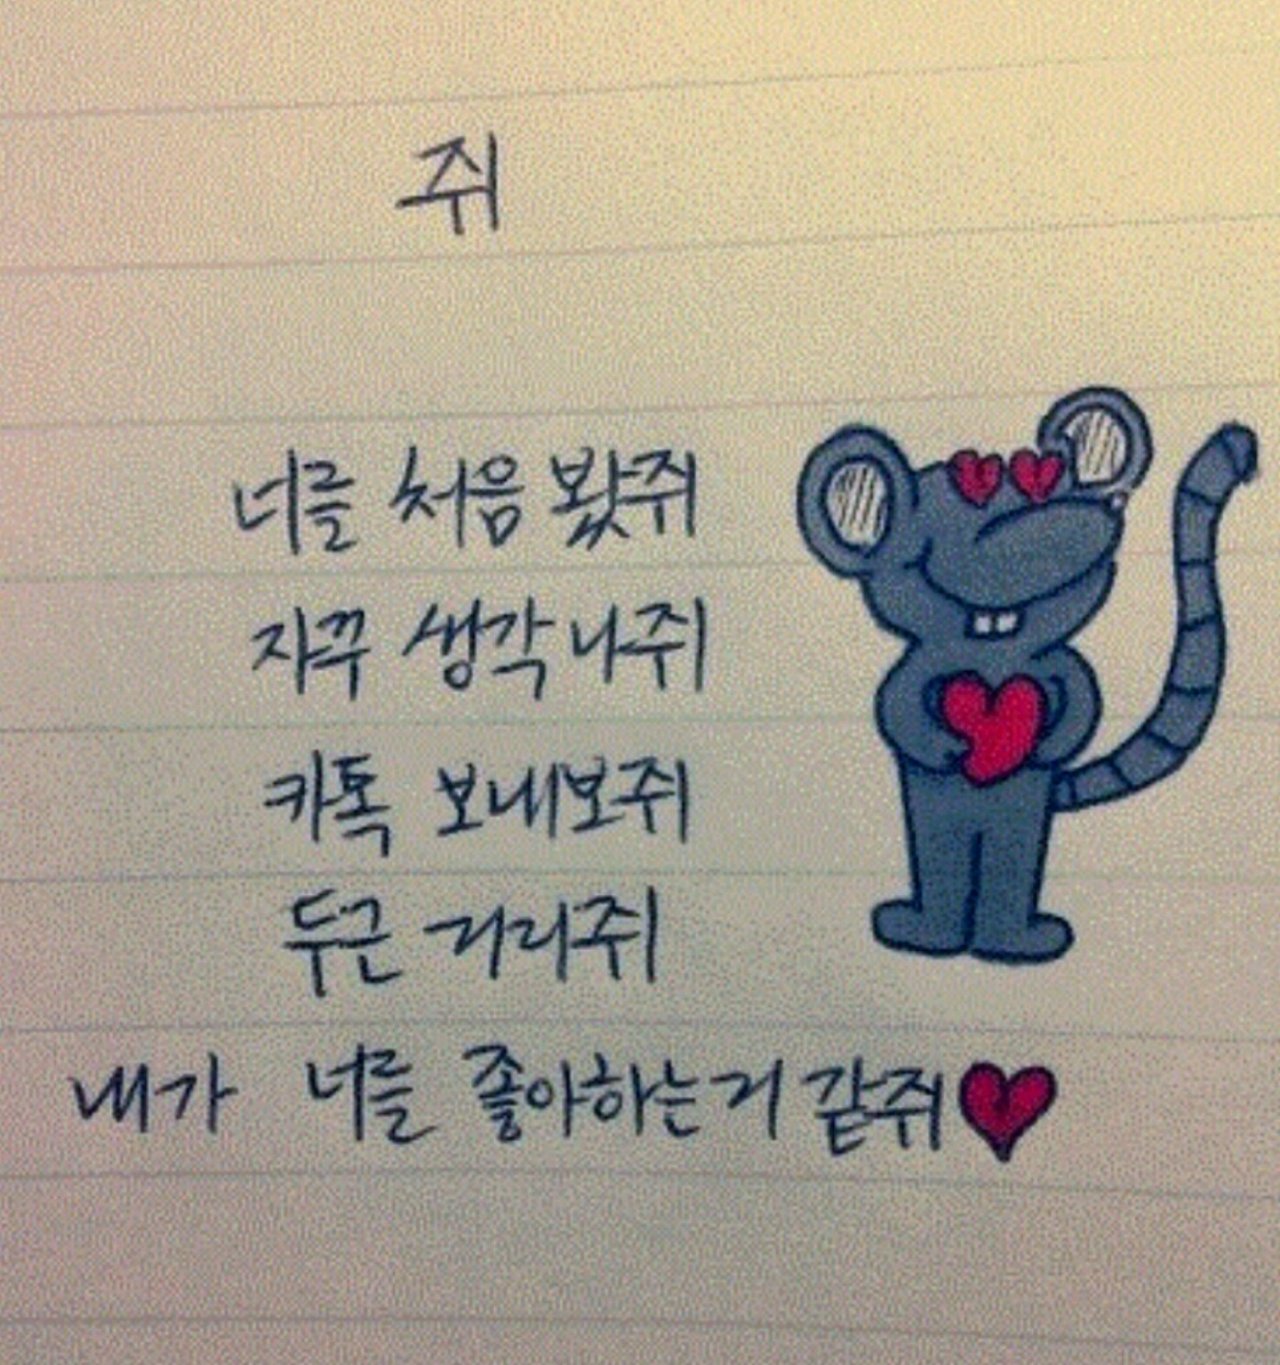 쥐
너를 처음 봤쥐
자꾸 생각나쥐
카톡 보내보쥐
두근 거리쥐
내가 너를 좋아하는거 같쥐♥